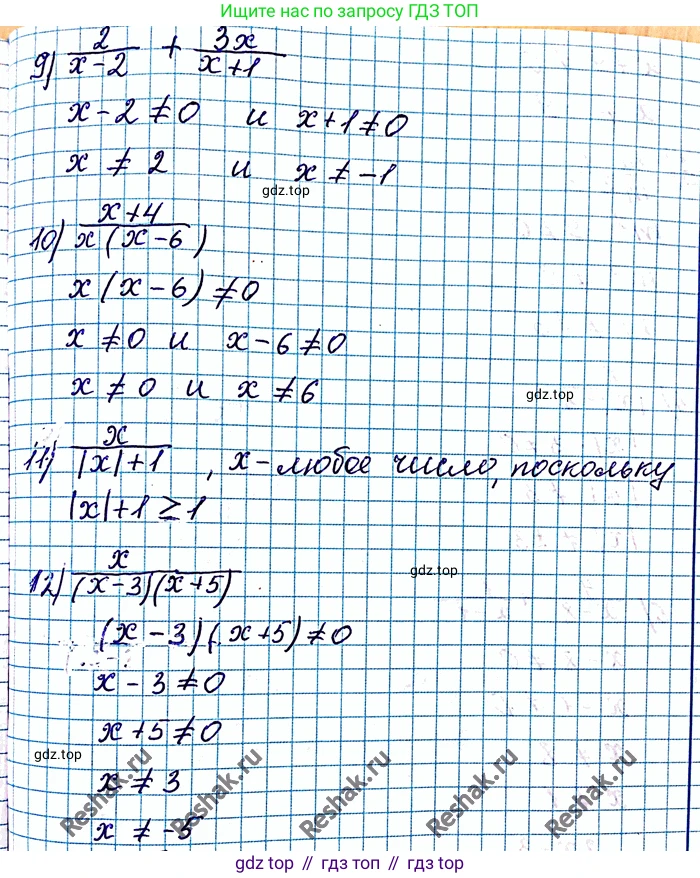 Ищите нас по запросу ГДЗ ТОП
9) 2/(x-2) + 3x/(x+1)
x-2≠0 и x+1≠0
x ≠ 2 и x ≠ -1
gdz.top
10) (x+4)/(x(x-6))
x(x-6)≠0
x≠0 и x-6≠0
x≠0 и x≠6
gdz.top
11) x/(|x|+1) , x-любое число, поскольку
|x|+1≥1
12) x/((x-3)(x+5))
gdz.top
(x-3)(x+5)≠0
x-3≠0
x+5≠0
gdz.top
x≠3
Reshak.ru Reshak.ru Reshak.ru Reshak.ru Reshak.ru
x≠-5
gdz top // гдз топ // gdz.top